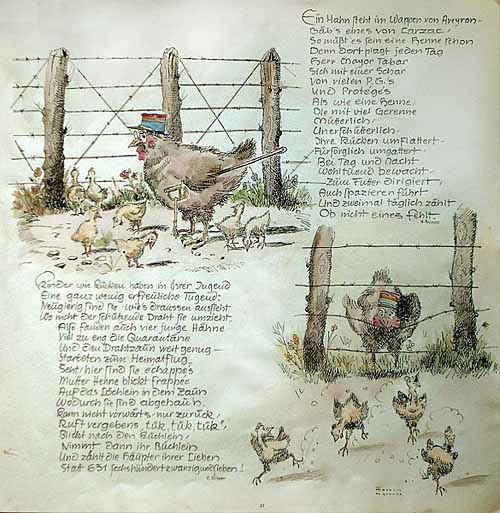 Ein Hahn steht im Wappen von Aveyron-
Gäb's eines von Carzac,
So müßt es sein eine Henne schon
Denn dort plagt jeden Tag
Herr Mayor Tabar
Sich mit einer Schar
Von vielen P.G.s
Und Protegés
Als wie eine Henne
Die mit viel Gerenne
Mütterlich
Unerschütterlich
Ihre Küken umflattert-
Fürsorglich umgattert-
Bei Tag und Nacht
Wohltuend bewacht
Zum Futter dirigiert,
Auch spazieren führt
Und zweimal täglich zählt
Ob nicht eines fehlt.
Kinder wie Küken haben in ihrer Jugend
Eine ganz wenig erfreuliche Tugend:
Neugierig sind sie wie's draussen aussieht
Wo nicht der schützende Draht sie umzieht.
Also fanden auch vier junge Hähne
Viel zu eng die Quarantäne
Und den Drahtzaun weit genug-
Starteten zum Heimatflug.
Seht, hier sind sie echappés
Mutter Henne blickt frappée
Auf das Löchlein in dem Zaun
Wodurch sie sind abgehaun
Kann nicht vorwärts - nur zurück,
Ruft vergebens "tük, tük, tük",
Blickt nach den Küchlein,
Nimmt dann ihr Büchlein
Und zählt die Häupter ihrer Lieben
Statt 631 sechshundertzwanzigundsieben!